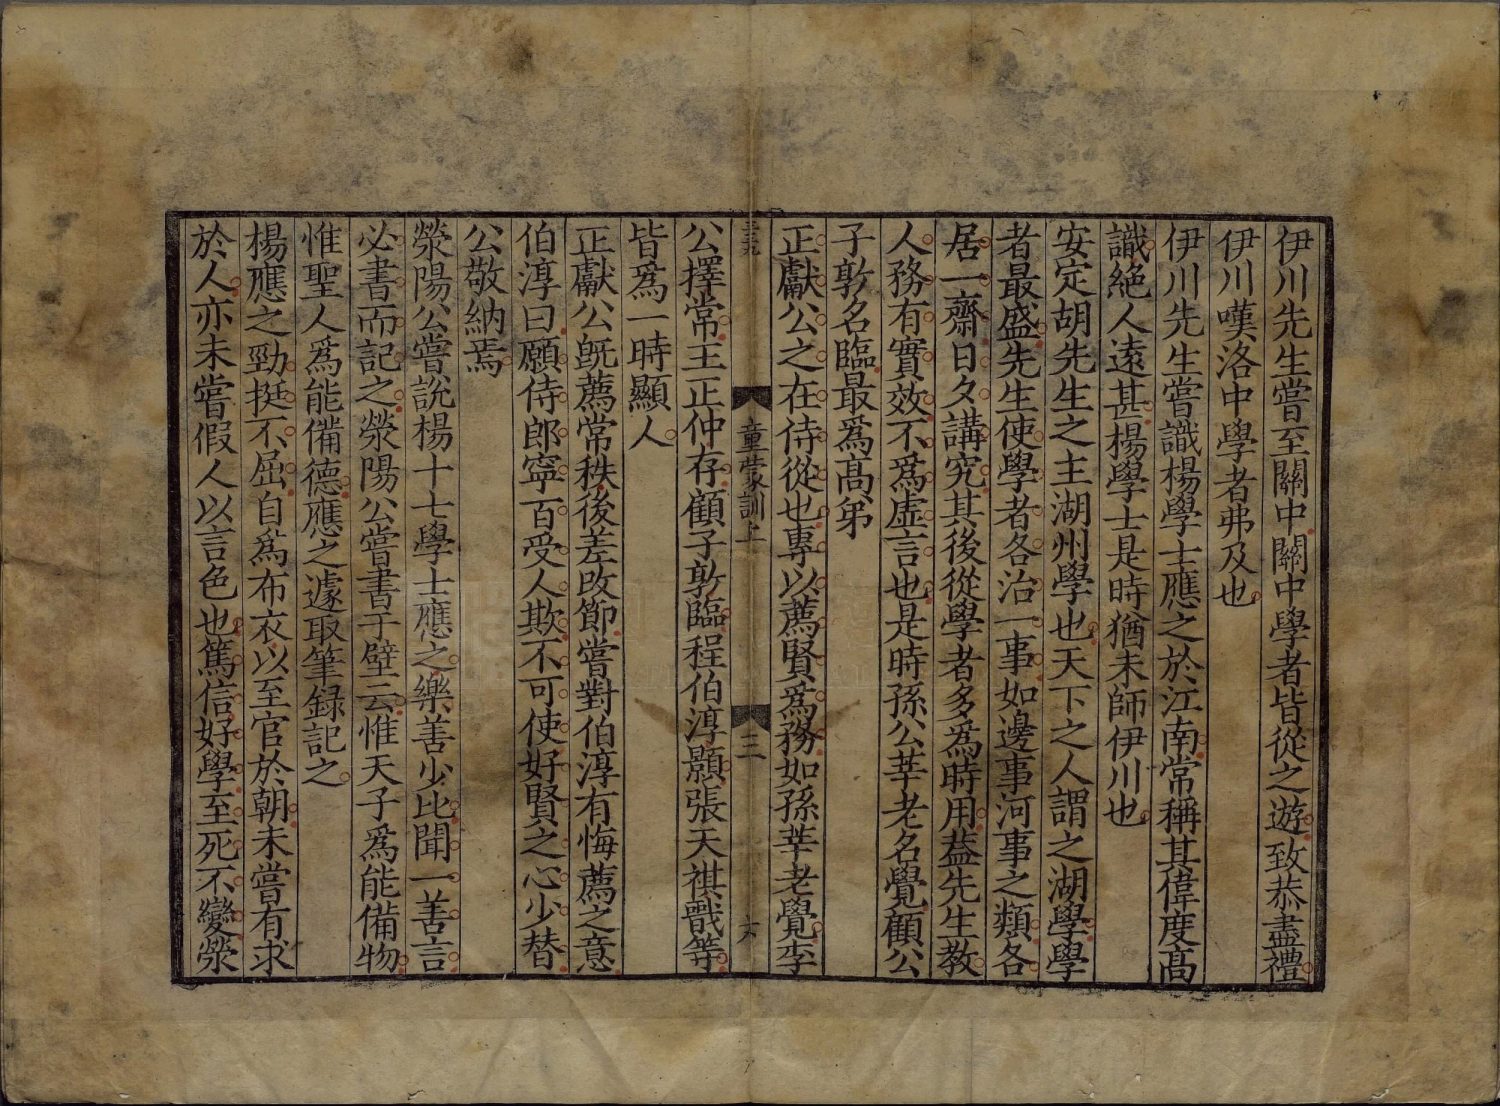 伊川先生嘗至關中關中學者皆從之遊致恭盡禮
伊川嘆洛中學者弗及也
伊川先生嘗識楊學士應之於江南常稱其偉度高
識絕人遠甚楊學士是時猶未師伊川也
安定胡先生之主湖州學也天下之人謂之湖學學
者最盛先生使學者各治一事如邊事河事之類各
居一齋日夕講究其後從學者多爲時用葢先生教
人務有實效不爲虛言也是時孫公莘老名覺顧公
子敦名臨最爲高弟
正獻公之在侍從也專以薦賢爲務如孫莘老覺李
童蒙訓上
三
六
公擇常王正仲存顧子敦臨程伯淳顥張天祺戩等
皆爲一時顯人
正獻公旣薦常秩後差改節嘗對伯淳有悔薦之意
伯淳曰願侍郎寧百受人欺不可使好賢之心少替
公敬納焉
滎陽公嘗說楊十七學士應之樂善少比聞一善言
必書而記之滎陽公嘗書于壁云惟天子爲能備物
惟聖人爲能備德應之遽取筆錄記之
楊應之勁挺不屈自爲布衣以至官於朝未嘗有求
於人亦未嘗假人以言色也篤信好學至死不變滎